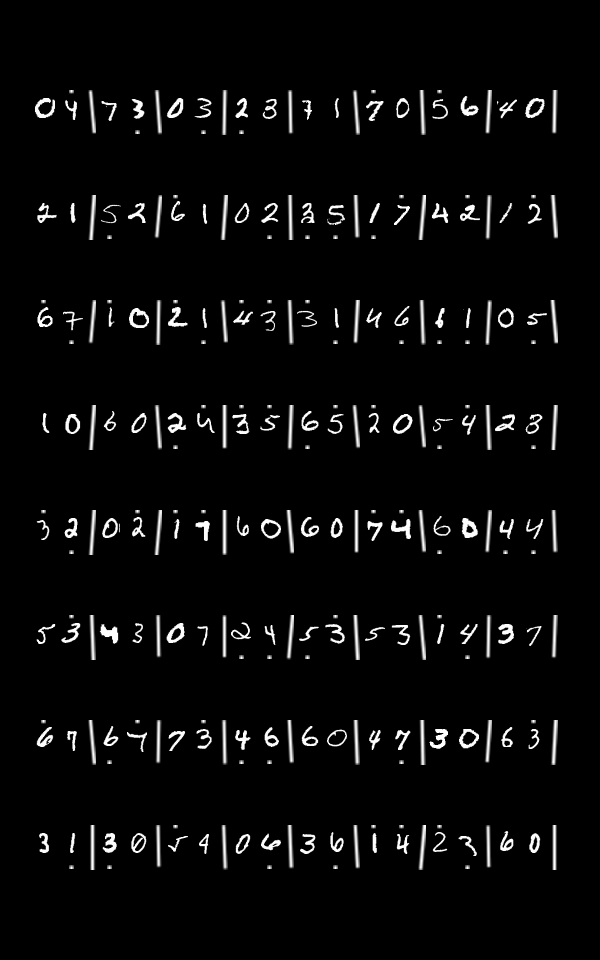 0 4̇ | 7 3̣ | 0 3̣ | 2̣ 3 | 7 1 | 7̇ 0 | 5̇ 6 | 4 0 |
2 1 | 5̣ 2 | 6̇ 1 | 0 2̣ | 3̣ 5̣ | 1̣ 7̇ | 4 2̇ | 1 2̇ |
6̇ 7 | 1̇ 0 | 2̇ 1̣ | 4̇ 3̇ | 3̇ 1̣ | 4 6̣ | 1̣ 1̣ | 0 5̣ |
1 0 | 6 0 | 2̣ 4̇ | 3̇ 5̇ | 6̣ 5 | 2̇ 0 | 5̣ 4̇ | 2 3̣ |
3̇ 2̣ | 0 2̇ | 1 7̇ | 6 0 | 6 0 | 7̇ 4̇ | 6̣ 0 | 4̣ 4̣ |
5 3̇ | 4 3 | 0 7 | 2̣ 4̣ | 5̣ 3̇ | 5 3 | 1̇ 4̣ | 3 7 |
6̇ 7 | 6̣ 7 | 7 3̇ | 4̣ 6̣ | 6 0 | 4 7̣ | 3 0 | 6 3̇ |
3 1̣ | 3̣ 0 | 5̇ 4 | 0 6̣ | 3 6̣ | 1̇ 4̇ | 2 3̣ | 6 0 |